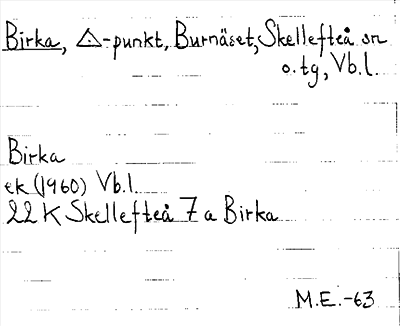 Birka, △-punkt, Burnäset, Skellefteå sn
o. tg, Vb.l.
Birka
ek (1960) Vb.l.
22 K Skellefteå 7 a Birka
M.E.-63